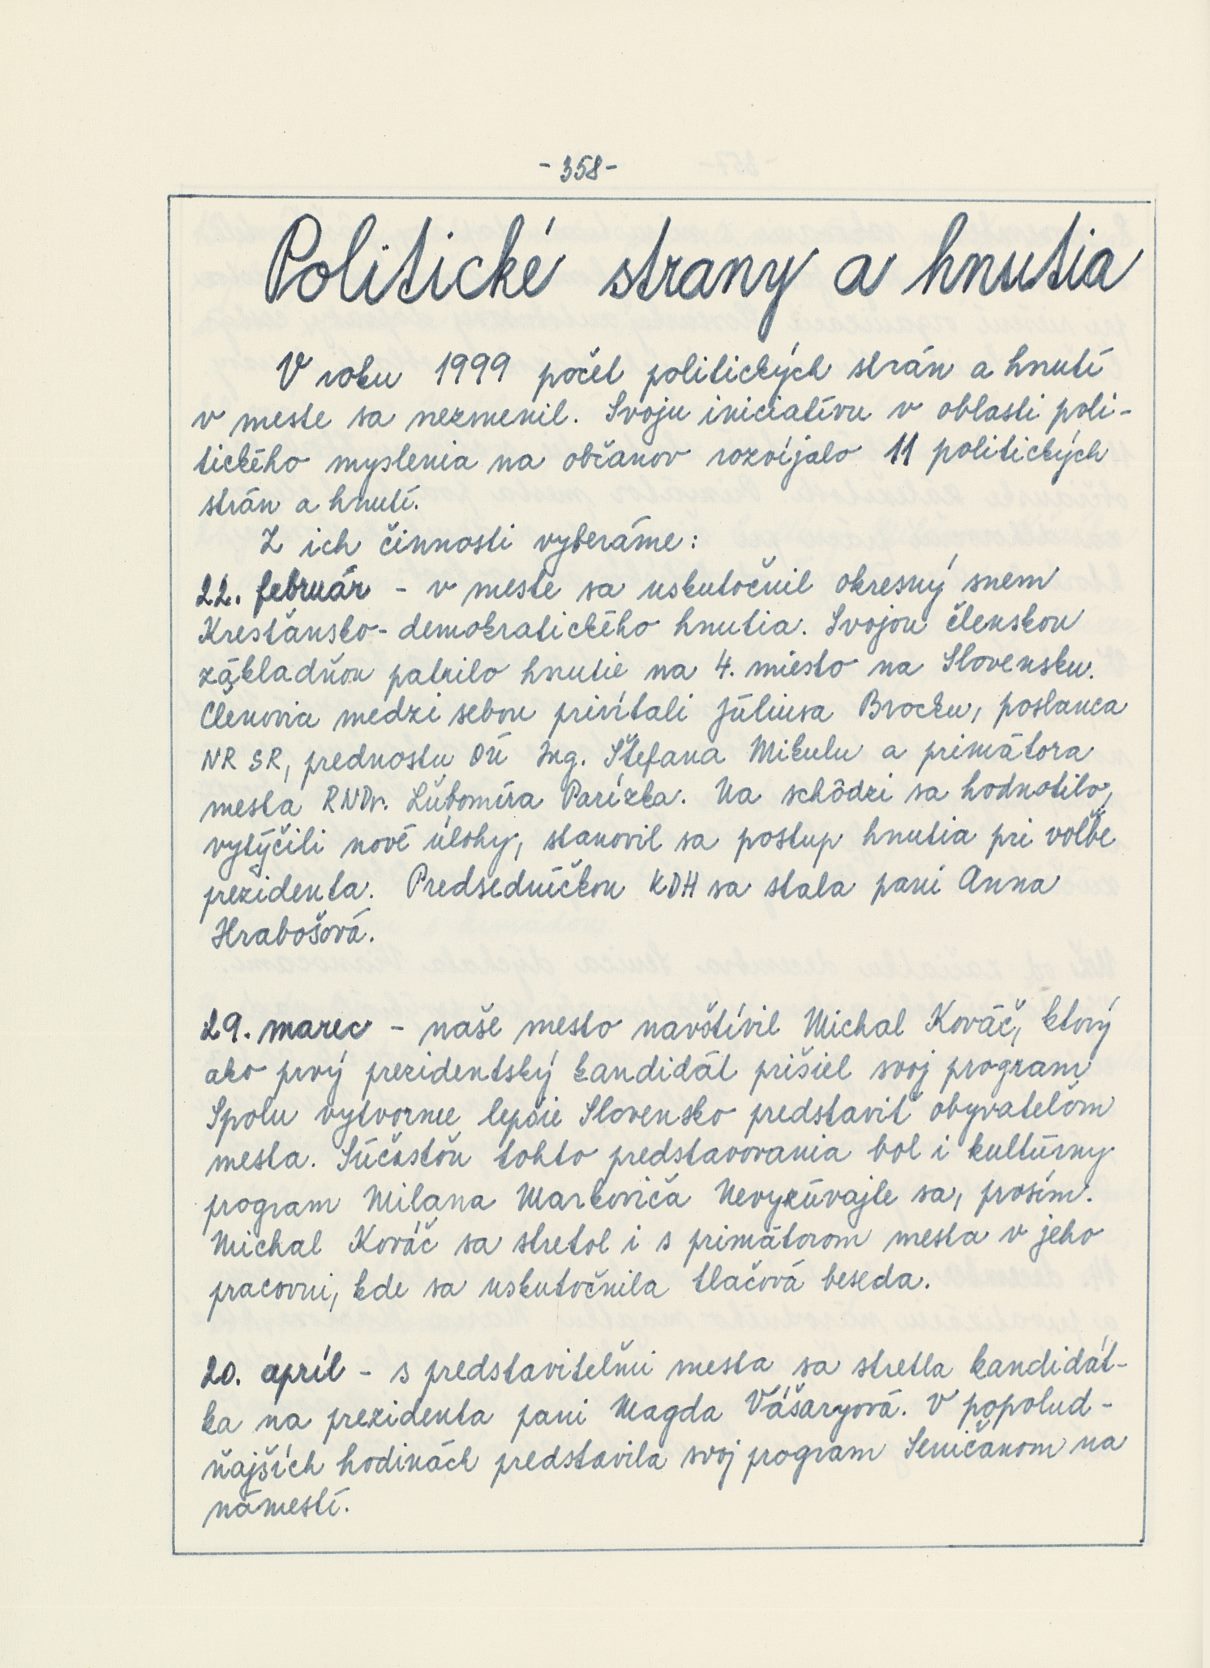 -358-
Politické strany a hnutia
V roku 1999 počet politických strán a hnutí
v meste sa nezmenil. Svoju iniciatívu v oblasti poli-
tického myslenia na občanov rozvíjalo 11 politických
strán a hnutí.
Z ich činnosti vyberáme:
22. február - v meste sa uskutočnil okresný snem
Kresťansko-demokratického hnutia. Svojou členskou
základňou patrilo hnutie na 4. miesto na Slovensku.
Členovia medzi sebou privítali Júliusa Brocku, poslanca
NR SR, prednostu OÚ Ing. Štefana Mikulu a primátora
mesta RNDr. Ľubomíra Parízka. Na schôdzi sa hodnotilo,
vytýčili nové úlohy, stanovil sa postup hnutia pri voľbe
prezidenta. Predsedníčkou KDH sa stala pani Anna
Hrabošová.
29. marec - naše mesto navštívil Michal Kováč, ktorý
ako prvý prezidentský kandidát prišiel svoj program
Spolu vytvorme lepšie Slovensko predstaviť obyvateľom
mesta. Súčasťou tohto predstavovania bol i kultúrny
program Milana Markoviča Nevyzúvajte sa, prosím.
Michal Kováč sa stretol i s primátorom mesta v jeho
pracovni, kde sa uskutočnila tlačová beseda.
20. apríl - s predstaviteľmi mesta sa stretla kandidát-
ka na prezidenta pani Magda Vášáryová. V popolud-
ňajších hodinách predstavila svoj program Seničanom na
námestí.